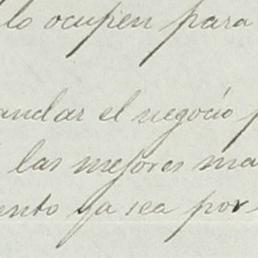 lo ocupen para
andar el negocio
las mejores ma
ento ya sea por